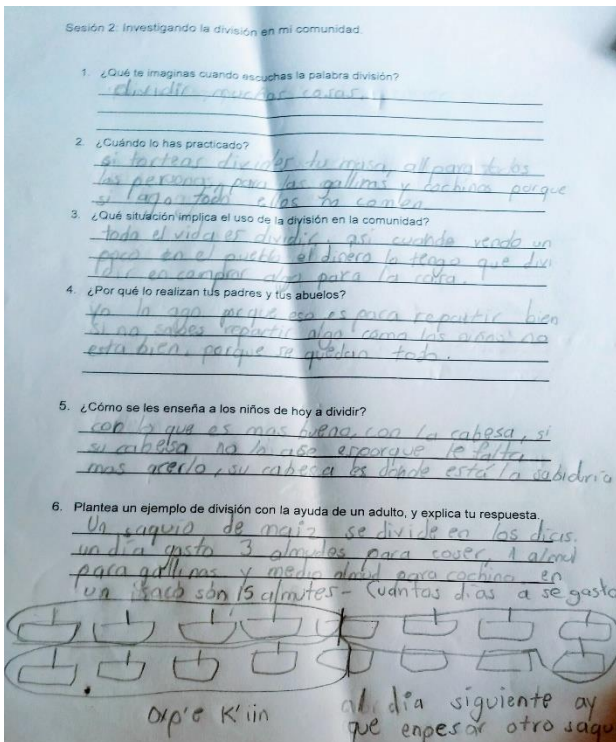 Sesión 2: Investigando la división en mi comunidad.
1. ¿Qué te imaginas cuando escuchas la palabra división?
dividir muchas cosas.
2. ¿Cuándo lo has practicado?
si torteas divides tu masa, all para to los
las personas, para las gallinas y cochinos porque
si lago todo ellos no comen
3. ¿Qué situación implica el uso de la división en la comunidad?
toda el vida es dividir, asi cuando vendo un
poco en el pueblo el dinero lo tengo que divi
Idir en comprar algo para la casa.
4. ¿Por qué lo realizan tus padres y tus abuelos?
yo lo ago porque eso es para repartir bien
si no sabes repartir algo como los niños no
esta bien, porque se quedan todo.
5. ¿Cómo se les enseña a los niños de hoy a dividir?
con lo que es mas bueno, con la cabesa, si
su cabesa no lo ase esporque le falta
mas acerlo, su cabesa es donde está la sabiduria
6. Plantea un ejemplo de división con la ayuda de un adulto, y explica tu respuesta.
Un saquio de maiz se divide en los dias.
un dia gasto 3 almudes para coser, 1 almud
para gallinas y medio almud para cochino, en
un saco son 15 almutes- Cuantos dias a se gasto
oxp'e K'iin
al dia siguiente ay
que enpesar otro saqu